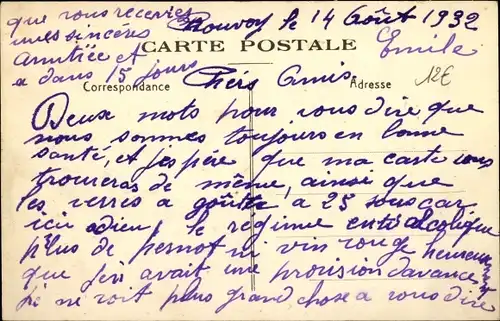 Rouvoy le 14 Août 1932
CARTE POSTALE
Correspondance
Adresse
12€
Chers Amis
Deux mots pour vous dire que
nous sommes toujours en bonne
santé, et j'espère que ma carte vous
trouveras de même, ainsi que
les verres a goutte a 25 sous car
ici adieu, le regime
plus de pernot ni vin rouge heureux
que j'en avait une provision davance
Je ne voit plus grand chose a vous dire
que vous recevrez
mes sincères
amitiée et
a dans 15 jours
Emile